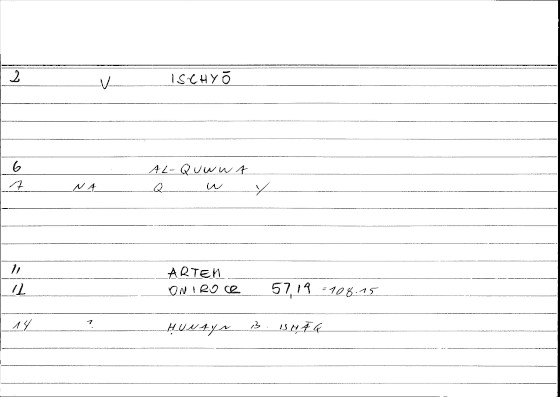 2 V ISCHYŌ
6 AL-QUWWA
7 NA Q W Y
11 ARTEM
12 ONIROCR 57,19 =108.15
14 1. ḤUNAYN B. ISḤĀQ